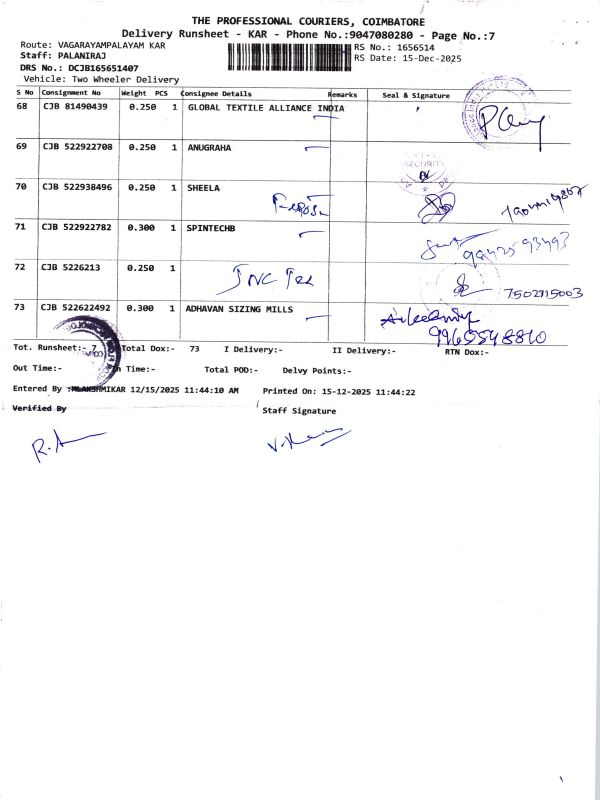 THE PROFESSIONAL COURIERS, COIMBATORE
Delivery Runsheet - KAR - Phone No.:9047080280 - Page No.:7
Route: VAGARAYAMPALAYAM KAR
RS No.: 1656514
Staff: PALANIRAJ
RS Date: 15-Dec-2025
DRS No.: DCJB165651407
Vehicle: Two Wheeler Delivery
S No Consignment No Weight PCS Consignee Details Remarks Seal & Signature
68 CJB 81490439 0.250 1 GLOBAL TEXTILE ALLIANCE INDIA
69 CJB 522922708 0.250 1 ANUGRAHA
SECURITY
70 CJB 522938496 0.250 1 SHEELA
71 CJB 522922782 0.300 1 SPINTECHB
98425 93493
72 CJB 5226213 0.250 1
73 CJB 522622492 0.300 1 ADHAVAN SIZING MILLS
Tot. Runsheet:- 7 Total Dox:- 73 I Delivery:- II Delivery:- RTN Dox:-
Out Time:- In Time:- Total POD:- Delvy Points:-
Entered By :MLAKSHMIKAR 12/15/2025 11:44:10 AM Printed On: 15-12-2025 11:44:22
Verified By Staff Signature